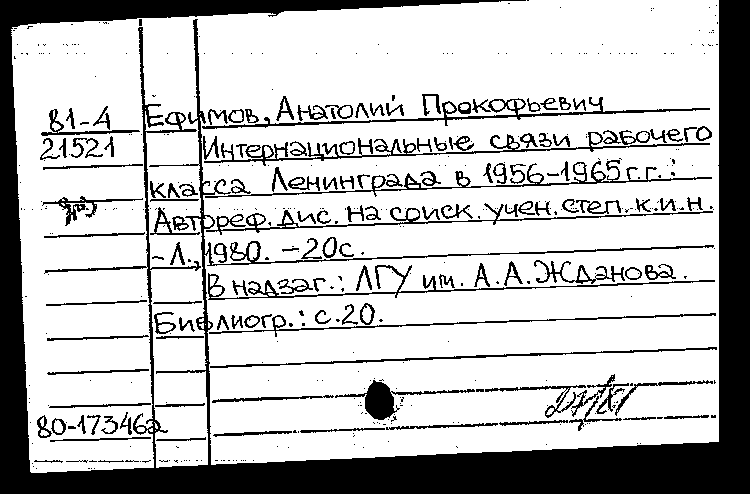 81-4 Ефимов, Анатолий Прокофьевич
21521 Интернациональные связи рабочего
класса Ленинграда в 1956-1965 г.г.:
Автореф. дис. на соиск. учен. степ. к.и.н.
- Л., 1980. - 20с.
В надзаг.: ЛГУ им. А.А. Жданова.
Библиогр.: с.20.
80-17346а